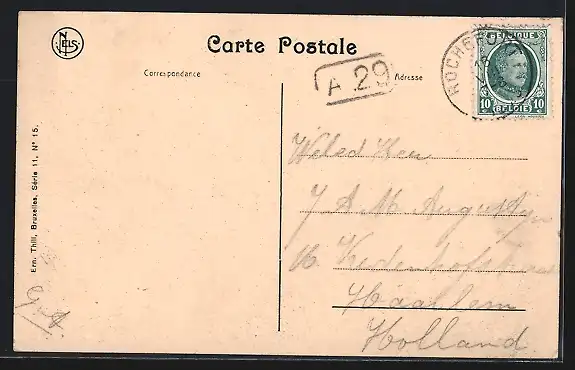 NELS
Carte Postale
Correspondance
A.29
Adresse
ROCHEF
BELGIQUE
10 10
BELGIË
Ern. Thill, Bruxelles, Série 11, N° 15.
Weled Heer
J A M Augustijn
Haarlem
Holland.